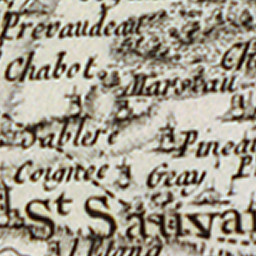 Prevaudeau
Chabot
Ch
Marveau
Sablere
Pineau
Coignee
Geay
P
St Sauvan